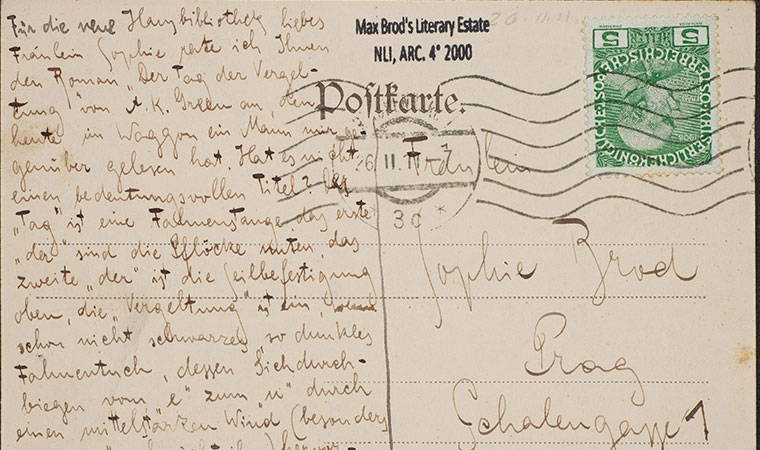 Für die neue Hausbibliothek liebes
Fräulein Sophie rate ich Ihnen
den Roman „Der Tag der Vergel-
tung" von A. K. Green an, den
heute im Waggon ein Mann mir ge-
genüber gelesen hat. Hat es nicht
einen bedeutungsvollen Titel? Der
„Tag" ist eine Fahnenstange, das erste
„der" sind die Pflöcke unten, das
zweite „der" ist die Seilbefestigung
oben, die „Vergeltung" ist ein,
schon nicht schwarzes so dunkles
Fahnentuch, dessen Sichdurch-
biegen vom „e" zum „u" durch
einen mittelstarken Wind (besonders
Max Brod's Literary Estate
NLI, ARC. 4° 2000
26. II. 11.
Postkarte.
26 II. 11 - 7
3c *
5 5
KAISERLICHE KÖNIGLICHE ÖSTERREICHISCHE POST
Fräulein
Sophie Brod
Prag
Schalengasse 1